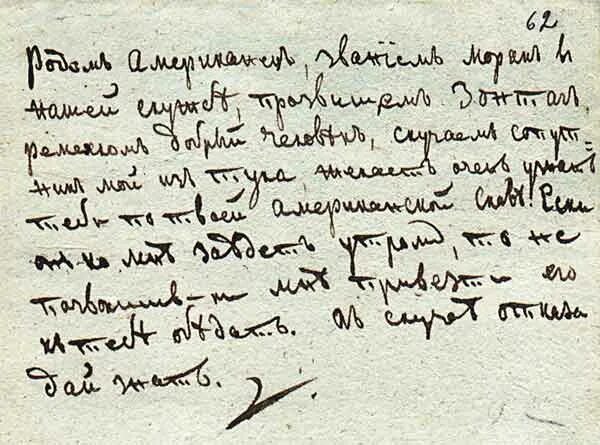 62
Родомъ Американецъ, званіемъ Морякъ въ
нашей службѣ, прозвищемъ Зонтагъ,
ремесломъ добрый человѣкъ, случаемъ сопут=
никъ мой изъ Тула, желаетъ очень узнать
тебя по твоей Американской славѣ. Если
онъ ко мнѣ заѣдетъ утромъ, то не
позволишь-ли мнѣ привезти его
къ тебѣ обѣдать. Въ случаѣ отказа
дай знать.